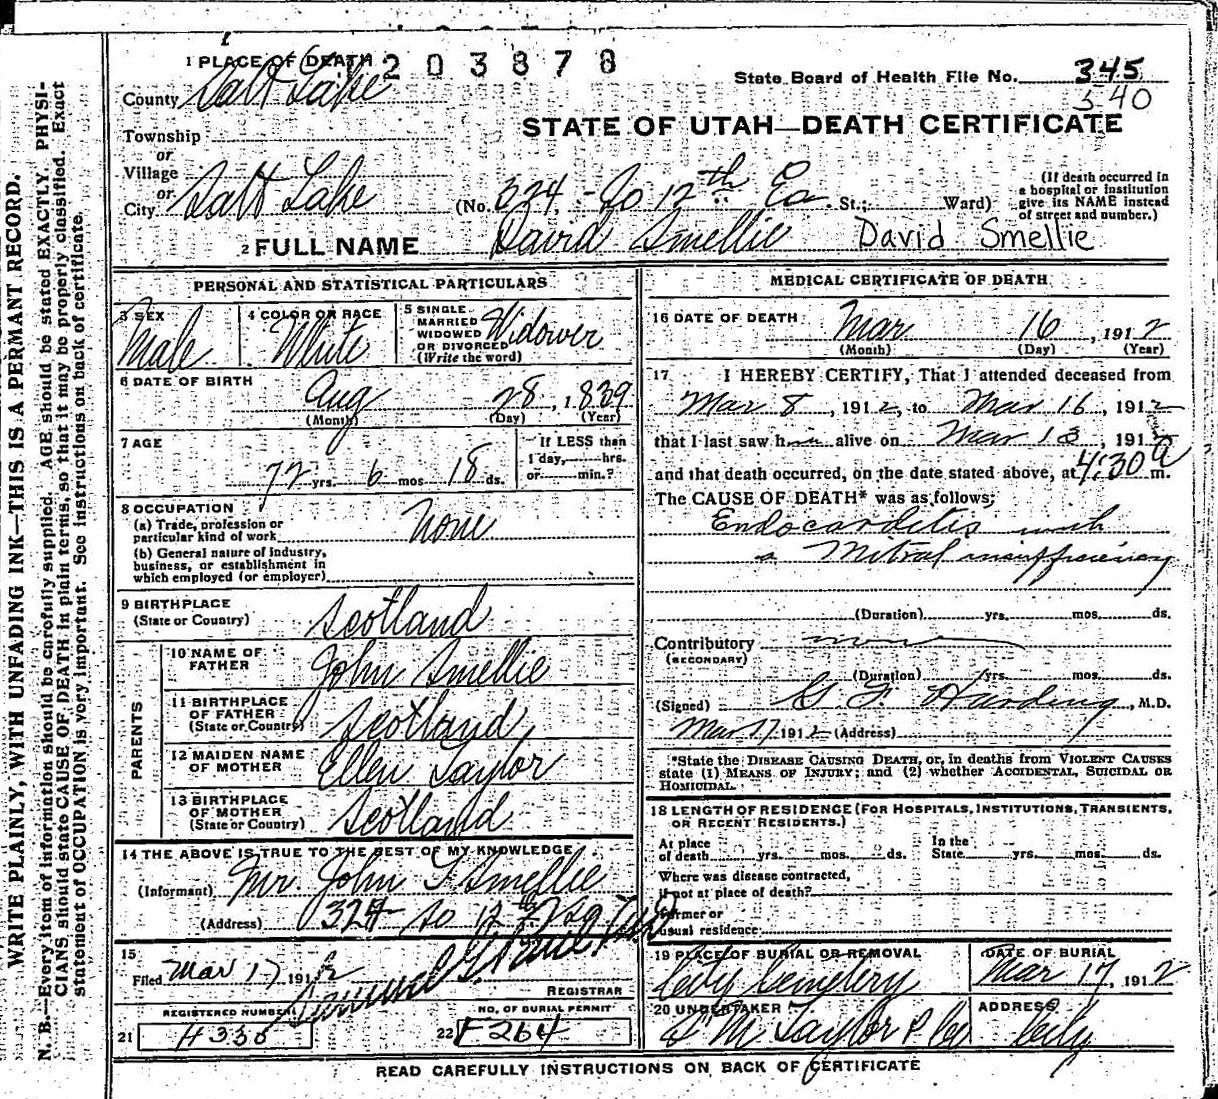 WRITE PLAINLY, WITH UNFADING INK—THIS IS A PERMANT RECORD.
N. B.—Every item of information should be carefully supplied. AGE should be stated EXACTLY. PHYSI-
CIANS should state CAUSE OF DEATH in plain terms, so that it may be properly classified. Exact
statement of OCCUPATION is very important. See instructions on back of certificate.
1 PLACE OF DEATH 203878
State Board of Health File No. 345
540
County Salt Lake
STATE OF UTAH—DEATH CERTIFICATE
Township
or
Village
or
City Salt Lake (No. 324 - So 12th Ea. St.; Ward)
(If death occurred in
a hospital or institution
give its NAME instead
of street and number.)
2 FULL NAME David Smellie David Smellie
PERSONAL AND STATISTICAL PARTICULARS
3 SEX Male
4 COLOR OR RACE White
5 SINGLE
MARRIED
WIDOWED
OR DIVORCED
(Write the word) Widower
6 DATE OF BIRTH Aug 28, 1839
(Month) (Day) (Year)
7 AGE 72 yrs. 6 mos 18 ds.
If LESS than
1 day, hrs.
or min.?
8 OCCUPATION
(a) Trade, profession or
particular kind of work None
(b) General nature of industry,
business, or establishment in
which employed (or employer)
9 BIRTHPLACE
(State or Country) Scotland
PARENTS
10 NAME OF
FATHER John Smellie
11 BIRTHPLACE
OF FATHER
(State or Country) Scotland
12 MAIDEN NAME
OF MOTHER Ellen Taylor
13 BIRTHPLACE
OF MOTHER
(State or Country) Scotland
14 THE ABOVE IS TRUE TO THE BEST OF MY KNOWLEDGE
(Informant) Mr. John T Smellie
(Address) 324 So 12th
15
Filed Mar 17 1912
REGISTRAR
REGISTERED NUMBER
21 H330
NO. OF BURIAL PERMIT
22 F264
MEDICAL CERTIFICATE OF DEATH
16 DATE OF DEATH Mar 16, 1912
(Month) (Day) (Year)
17 I HEREBY CERTIFY, That I attended deceased from
Mar 8, 1912, to Mar 16, 1912
that I last saw him alive on Mar 13, 1912
and that death occurred, on the date stated above, at 4:30 a m.
The CAUSE OF DEATH* was as follows;
Endocarditis with
a Mitral insufficiency
(Duration) yrs. mos. ds.
Contributory none
(SECONDARY)
(Duration) yrs. mos. ds.
(Signed) G. F. Harding, M.D.
Mar 17 1912 (Address)
*State the DISEASE CAUSING DEATH, or, in deaths from VIOLENT CAUSES
state (1) MEANS OF INJURY; and (2) whether ACCIDENTAL, SUICIDAL OR
HOMICIDAL.
18 LENGTH OF RESIDENCE (FOR HOSPITALS, INSTITUTIONS, TRANSIENTS,
OR RECENT RESIDENTS.)
At place
of death yrs. mos. ds.
In the
State yrs. mos. ds.
Where was disease contracted,
if not at place of death?
former or
usual residence
19 PLACE OF BURIAL OR REMOVAL
City Cemetery
DATE OF BURIAL
Mar 17, 1912
20 UNDERTAKER
S M Taylor & Co
ADDRESS
City
READ CAREFULLY INSTRUCTIONS ON BACK OF CERTIFICATE